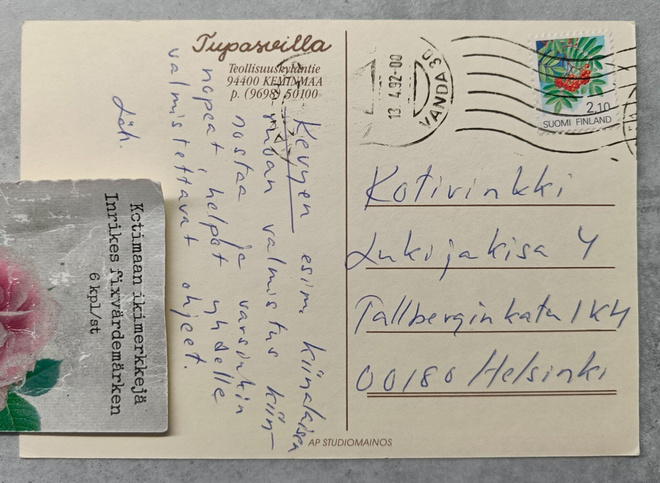 Tupasvilla
Teollisuuskyläntie
94400 KEMINMAA
p. (9698) 50100
Kevyen esim. kiinalaisen
ruuan valmistus kiin-
nostaa ja varsinkin
nopeat, helpot yhdelle
valmistettavat ohjeet.
Läh.
13.4.92-00
VANDA 30
2,10
SUOMI FINLAND
Kotivinkki
Lukijakisa 4
Tallberginkatu 1K4
00180 Helsinki
AP STUDIOMAINOS
Kotimaan ikimerkkejä
Inrikes fixvärdemärken
6 kpl/st